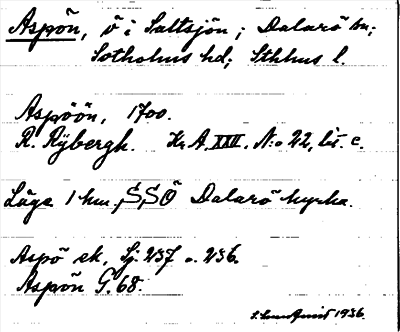 Aspön, ö i Saltsjön; Dalarö sn;
Sotholms hd; Sthlms l.
Aspöön, 1700.
R. Rÿbergh. Kr. A. XXII. N:o 22, lit. c.
Läge 1 km SSÖ Dalarö kyrka.
Aspö sk, Sj. 237 o. 236.
Aspön G. 68.
1936.